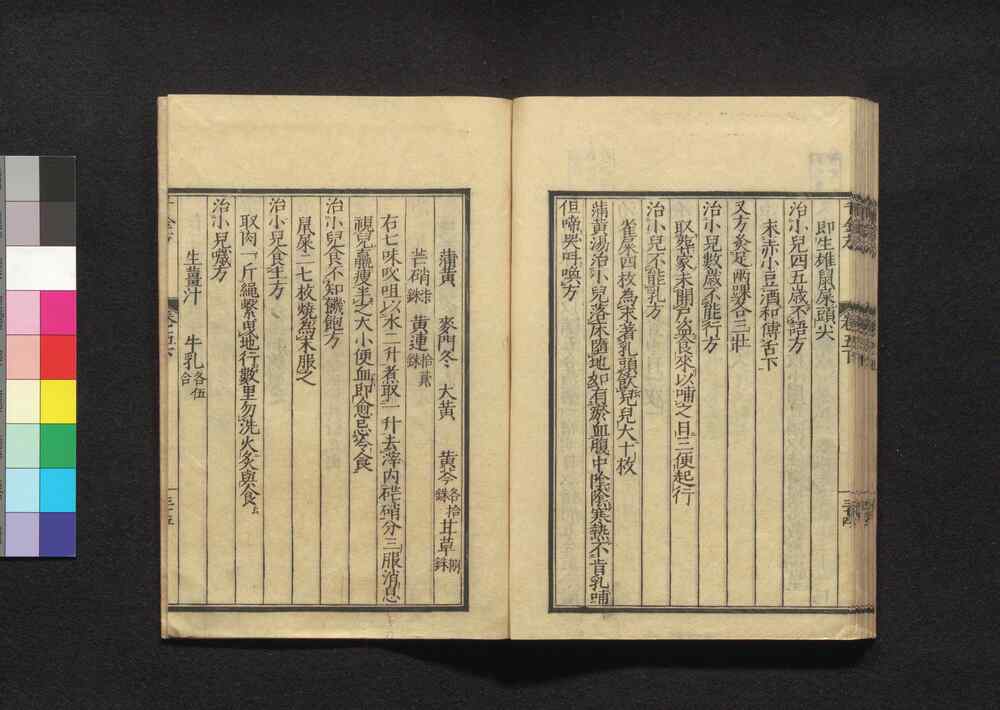 即生雄鼠屎頭尖
治小兒四五歲不語方
末赤小豆酒和傅舌下
又方灸足兩踝各三壯
治小兒數歲不能行方
取葬家未開戶盜食來以哺之日三便起行
治小兒不能乳方
雀屎四枚為末著乳頭飲兒兒大十枚
蒲黃湯治小兒落床墮地如有瘀血腹中陰陰寒熱不肯乳哺
但啼哭叫喚方
蒲黃 麥門冬 大黃 黃芩各拾銖 甘草捌銖
芒硝柒銖 黃連拾貳銖
右七味㕮咀以水二升煮取一升去滓內芒硝分三服消息
視兒羸瘦半之大小便血即愈忌冷食
治小兒食不知饑飽方
鼠屎二七枚燒為末服之
治小兒食土方
取肉一斤繩繫曳地行數里勿洗火炙與食之
治小兒噦方
生薑汁 牛乳各伍合